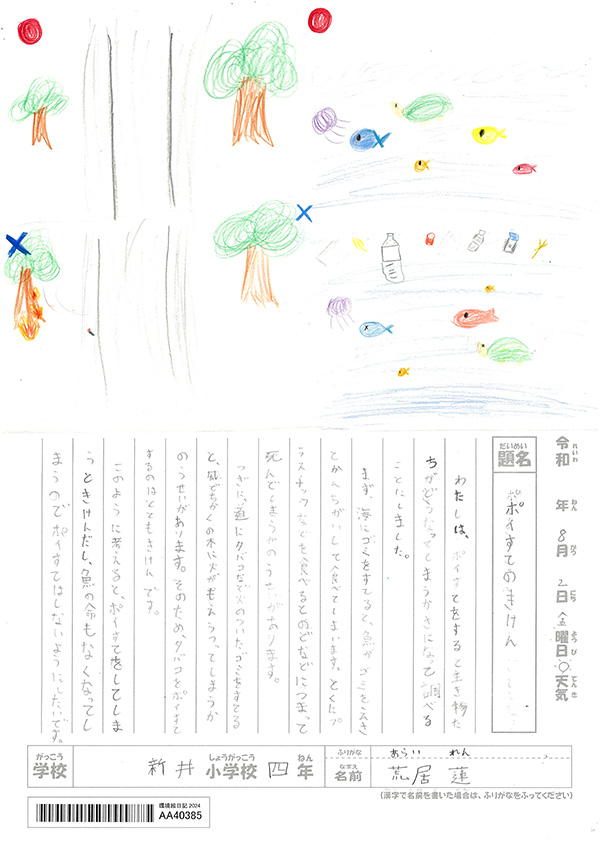 れいわ ねん がつ にち ようび てんき
令和 年 8月 2日 金曜日 天気
だいめい
題名 ポイすてのきけん
わたしは、ポイすてをすると生き物た
ちがどうなってしまうかきになって調べる
ことにしました。
まず、海にゴミをすてると、魚がゴミをえさ
とかんちがいして食べてしまいます。とくにプ
ラスチックなどを食べるとのどなどにつまって
死んでしまうかのうせいがあります。
つぎに、道にタバコなど火のついたゴミをすてる
と、風でちかくの木に火がもえうつってしまうか
のうせいがあります。そのため、タバコをポイすて
するのはとてもきけんです。
このように考えると、ポイすてをしてしま
うときけんだし、魚の命もなくなってし
まうのでポイすてはしないようにしたいです。
がっこう しょうがっこう ねん
学校 新井 小学校 四 年
ふりがな あらい れん
なまえ
名前 荒居 蓮
(漢字で名前を書いた場合は、ふりがなをふってください)
環境絵日記 2024
AA40385